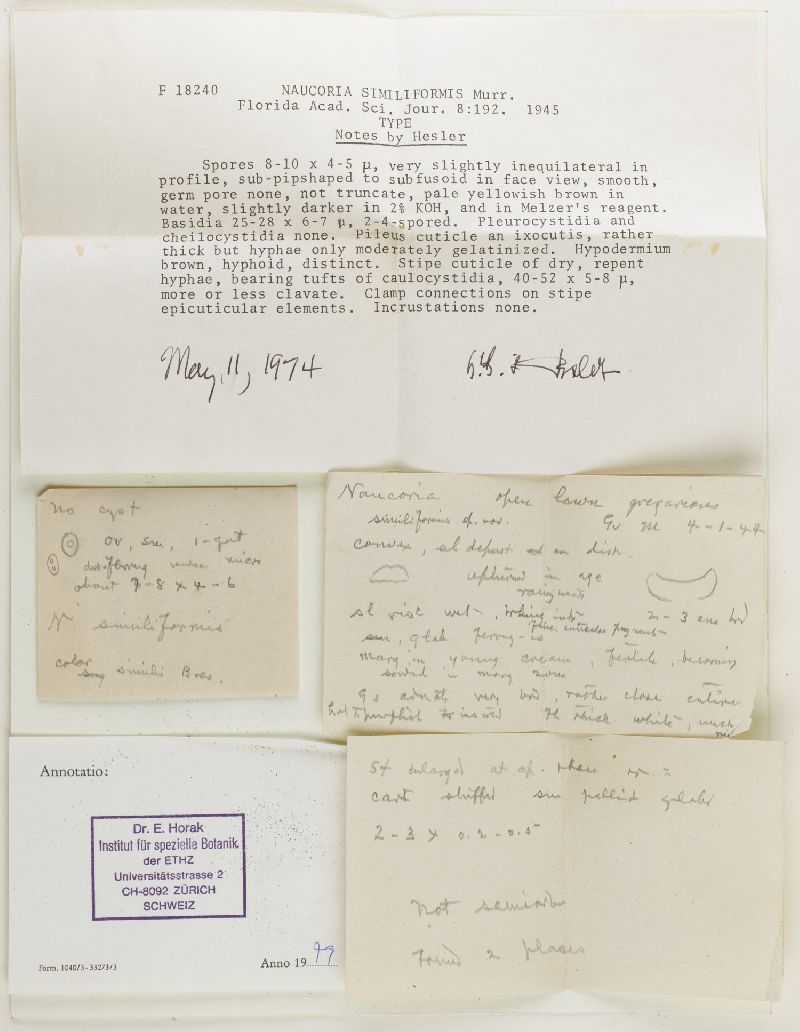 F 18240 NAUCORIA SIMILIFORMIS Murr.
Florida Acad. Sci. Jour. 8:192. 1945
TYPE
Notes by Hesler
Spores 8-10 x 4-5 µ, very slightly inequilateral in
profile, sub-pipshaped to subfusoid in face view, smooth,
germ pore none, not truncate, pale yellowish brown in
water, slightly darker in 2% KOH, and in Melzer's reagent.
Basidia 25-28 x 6-7 µ, 2-4-spored. Pleurocystidia and
cheilocystidia none. Pileus cuticle an ixocutis, rather
thick but hyphae only moderately gelatinized. Hypodermium
brown, hyphoid, distinct. Stipe cuticle of dry, repent
hyphae, bearing tufts of caulocystidia, 40-52 x 5-8 µ,
more or less clavate. Clamp connections on stipe
epicuticular elements. Incrustations none.
May 11, 1974
No cyst
ov, sm, 1-gutt
under micro
about 7-8 x 4-6
N similiformis
color simili Bres.
Naucoria open lawn gregarious
similiformis sp. nov. Gv M 4-1-44
convex, sl depress on disk.
upturned in age
sl visc wet, 2-3 cm brd
sm, glab ferrug-is
marg in young cream, fertile, becoming
Gs adnate very brd, rather close entire
to insved thick white,
St enlarged at ap.
cart stuffed sm pallid glabr
2-3 x 0.2-0.5
Not semiorb
Found 2 places
Annotatio:
Dr. E. Horak
Institut für spezielle Botanik
der ETHZ
Universitätsstrasse 2
CH-8092 ZÜRICH
SCHWEIZ
Form. 1040/3-33273/3 Anno 19 79